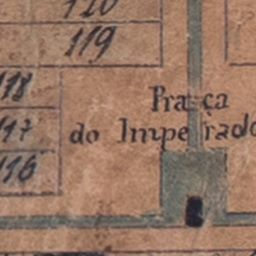 120
119
118
117
116
Praça
do Imperado